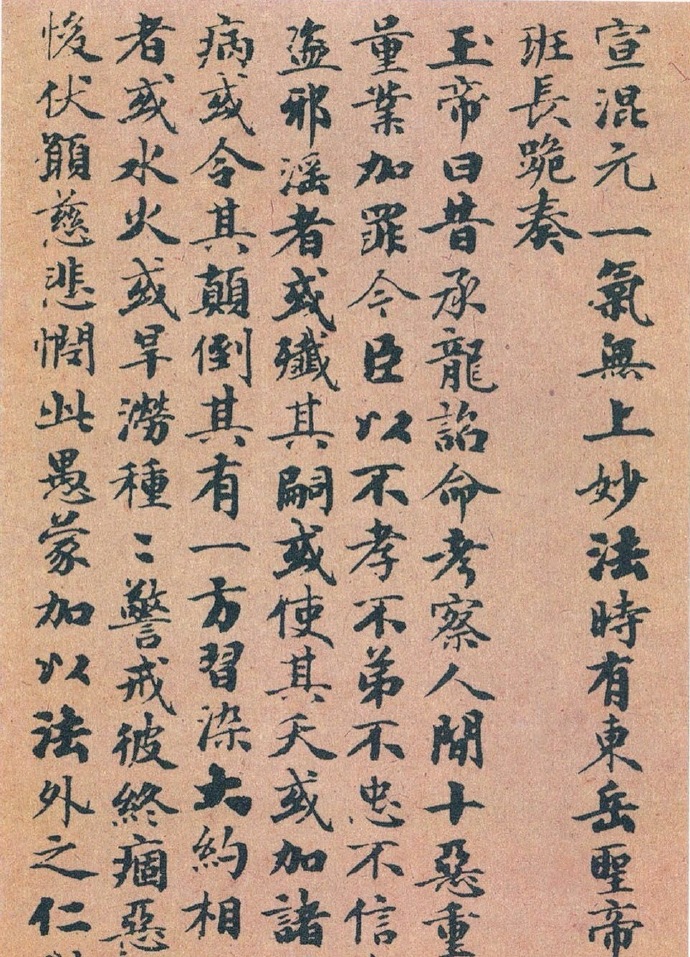 宣混元一氣無上妙法時有東岳聖帝
班長跪奏
玉帝曰昔承龍詔命考察人間十惡重
量業加罪今臣以不孝不弟不忠不信
盜邪滛者或殱其嗣或使其夭或加諸
病或令其顛倒其有一方習染大約相
者或水火或旱澇種〻警戒彼終痼惡
悛伏願慈悲憫此愚蒙加以法外之仁